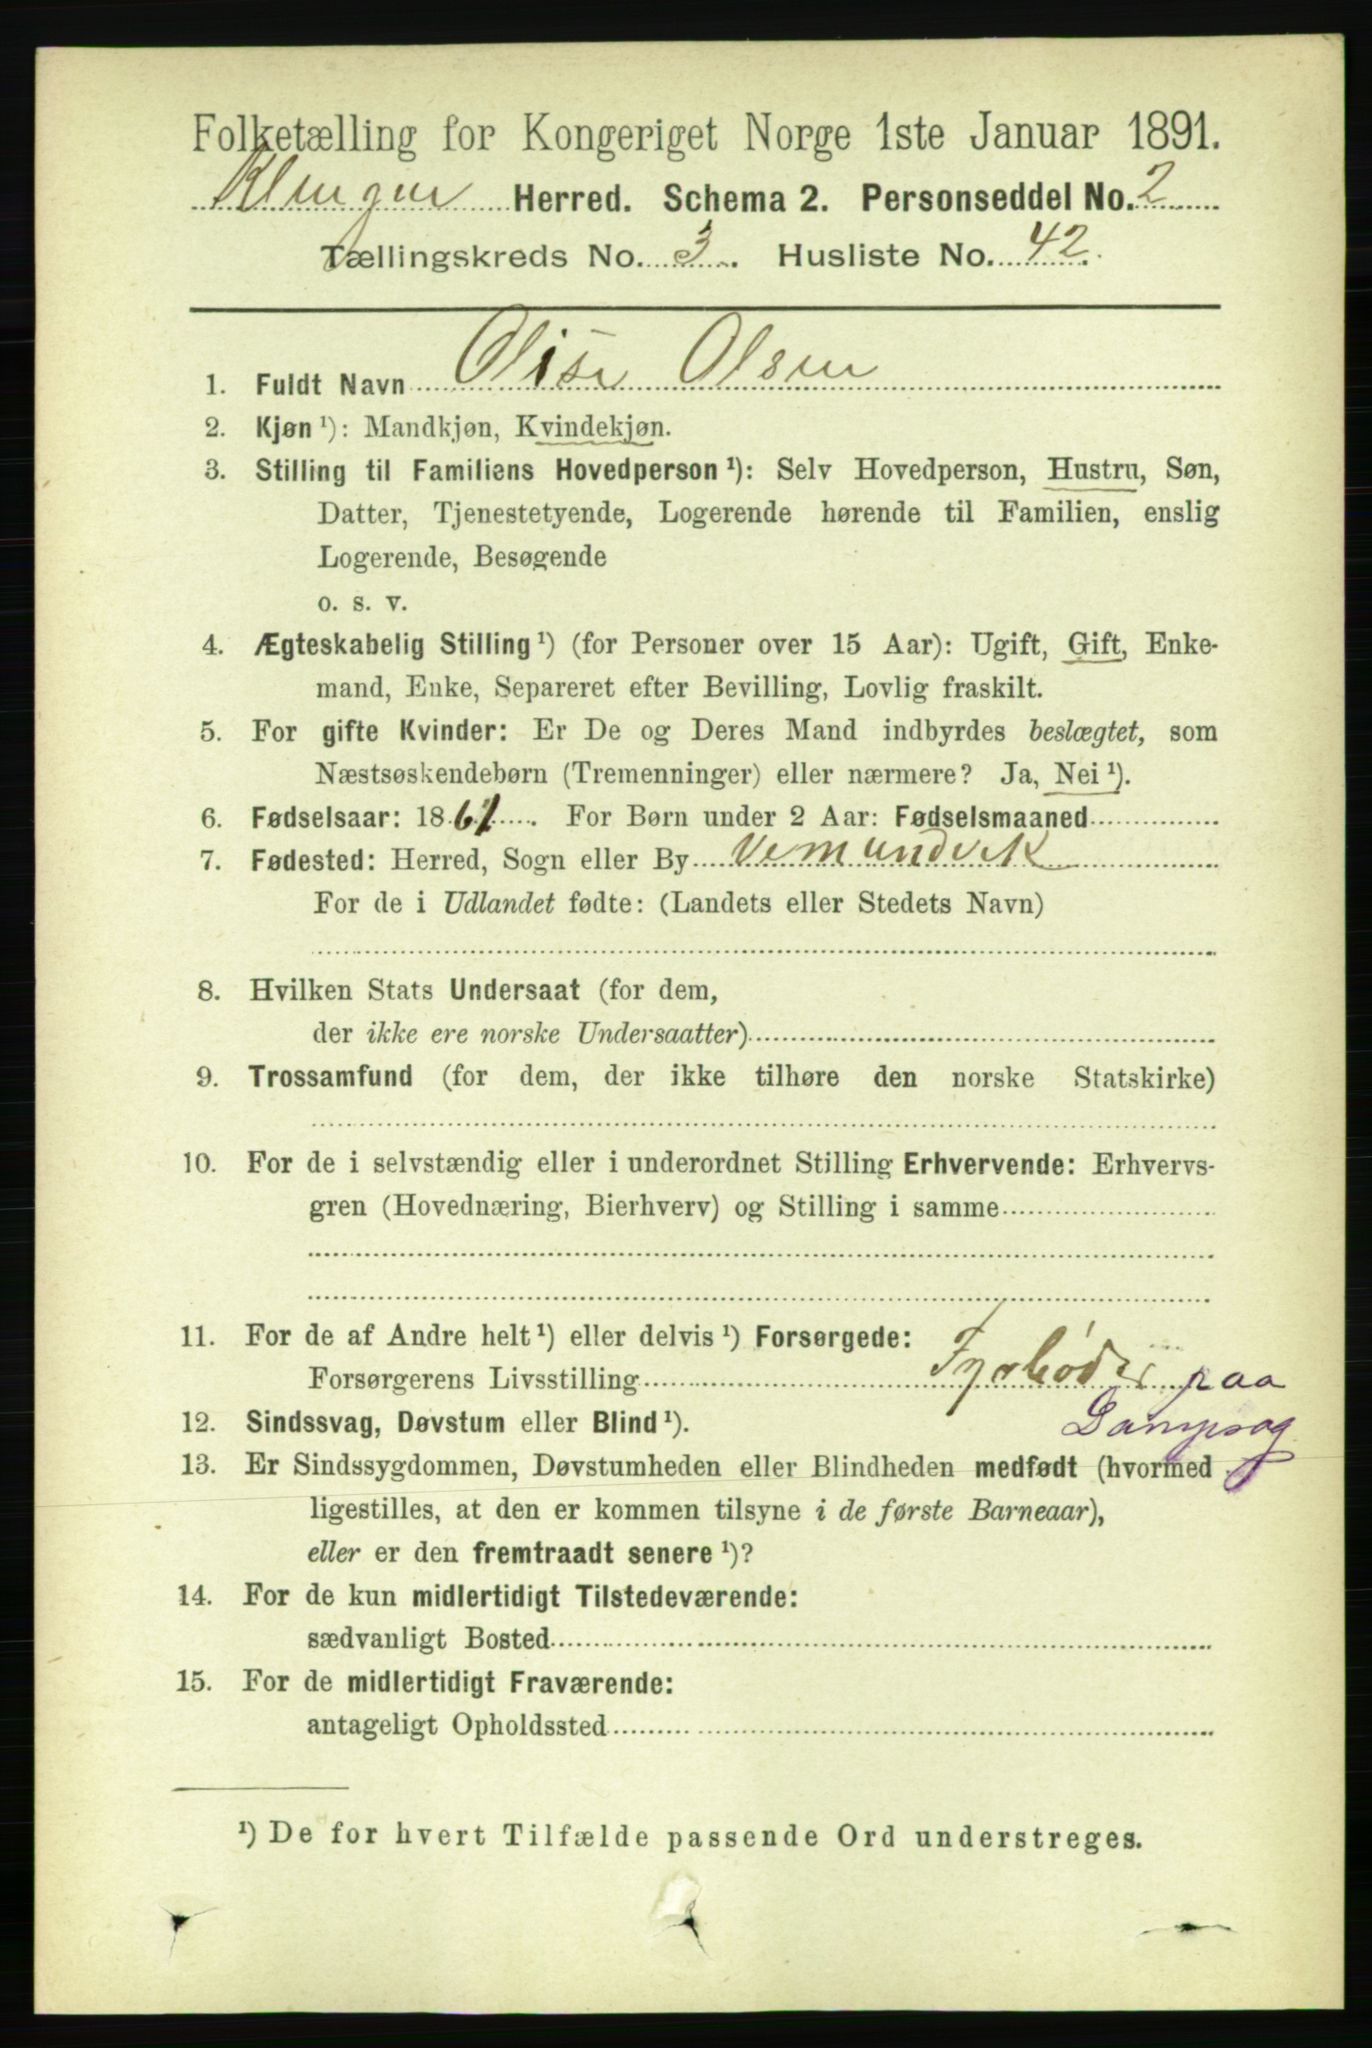 Folketælling for Kongeriget Norge 1ste Januar 1891.
Klingen Herred. Schema 2. Personseddel No. 2
Tællingskreds No. 3. Husliste No. 42.
1. Fuldt Navn Olise Olsen
2. Kjøn ¹): Mandkjøn, Kvindekjøn.
3. Stilling til Familiens Hovedperson ¹): Selv Hovedperson, Hustru, Søn,
Datter, Tjenestetyende, Logerende hørende til Familien, enslig
Logerende, Besøgende
o. s. v.
4. Ægteskabelig Stilling ¹) (for Personer over 15 Aar): Ugift, Gift, Enke-
mand, Enke, Separeret efter Bevilling, Lovlig fraskilt.
5. For gifte Kvinder: Er De og Deres Mand indbyrdes beslægtet, som
Næstsøskendebørn (Tremenninger) eller nærmere? Ja, Nei ¹).
6. Fødselsaar: 1861. For Børn under 2 Aar: Fødselsmaaned
7. Fødested: Herred, Sogn eller By Vemundvik
For de i Udlandet fødte: (Landets eller Stedets Navn)
8. Hvilken Stats Undersaat (for dem,
der ikke ere norske Undersaatter)
9. Trossamfund (for dem, der ikke tilhøre den norske Statskirke)
10. For de i selvstændig eller i underordnet Stilling Erhvervende: Erhvervs-
gren (Hovednæring, Bierhverv) og Stilling i samme
11. For de af Andre helt ¹) eller delvis ¹) Forsørgede:
Forsørgerens Livsstilling Fyrbøder paa
12. Sindssvag, Døvstum eller Blind ¹). Dampsag
13. Er Sindssygdommen, Døvstumheden eller Blindheden medfødt (hvormed
ligestilles, at den er kommen tilsyne i de første Barneaar),
eller er den fremtraadt senere ¹)?
14. For de kun midlertidigt Tilstedeværende:
sædvanligt Bosted
15. For de midlertidigt Fraværende:
antageligt Opholdssted
¹) De for hvert Tilfælde passende Ord understreges.